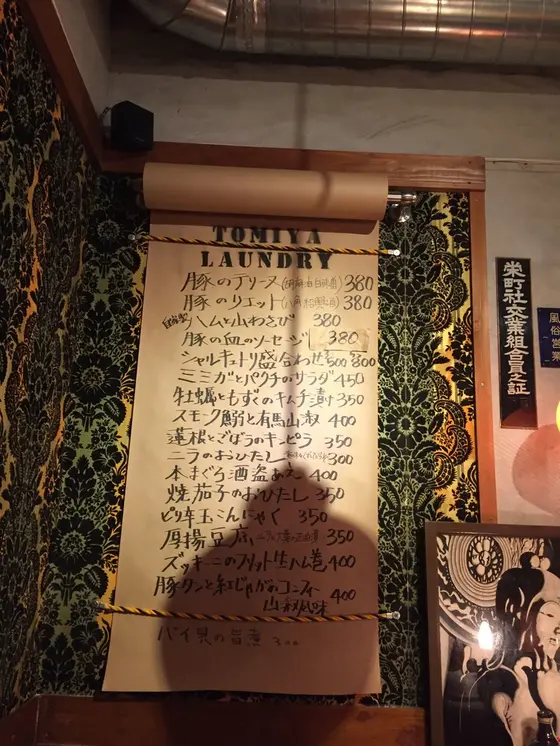 TOMIYA
LAUNDRY
豚のテリーヌ 380
豚のリエット 380
自家製ハムと山わさび 380
豚の血のソーセージ 380
シャルキュトリ盛合わせ 500 800
ミミガとパクチのサラダ 450
牡蠣ともずくのキムチ漬 350
スモーク鰯と有馬山椒 400
蓮根とごぼうのキンピラ 350
ニラのおひたし 300
本まぐろ酒盗あえ 400
焼茄子のおひたし 350
ピリ辛玉こんにゃく 350
厚揚豆腐 350
ズッキーニのフリット生ハム巻 400
豚タンと紅じゃがのコンフィー 400
山椒風味
バイ貝の旨煮 300
栄町社交業組合員之証
風俗営業